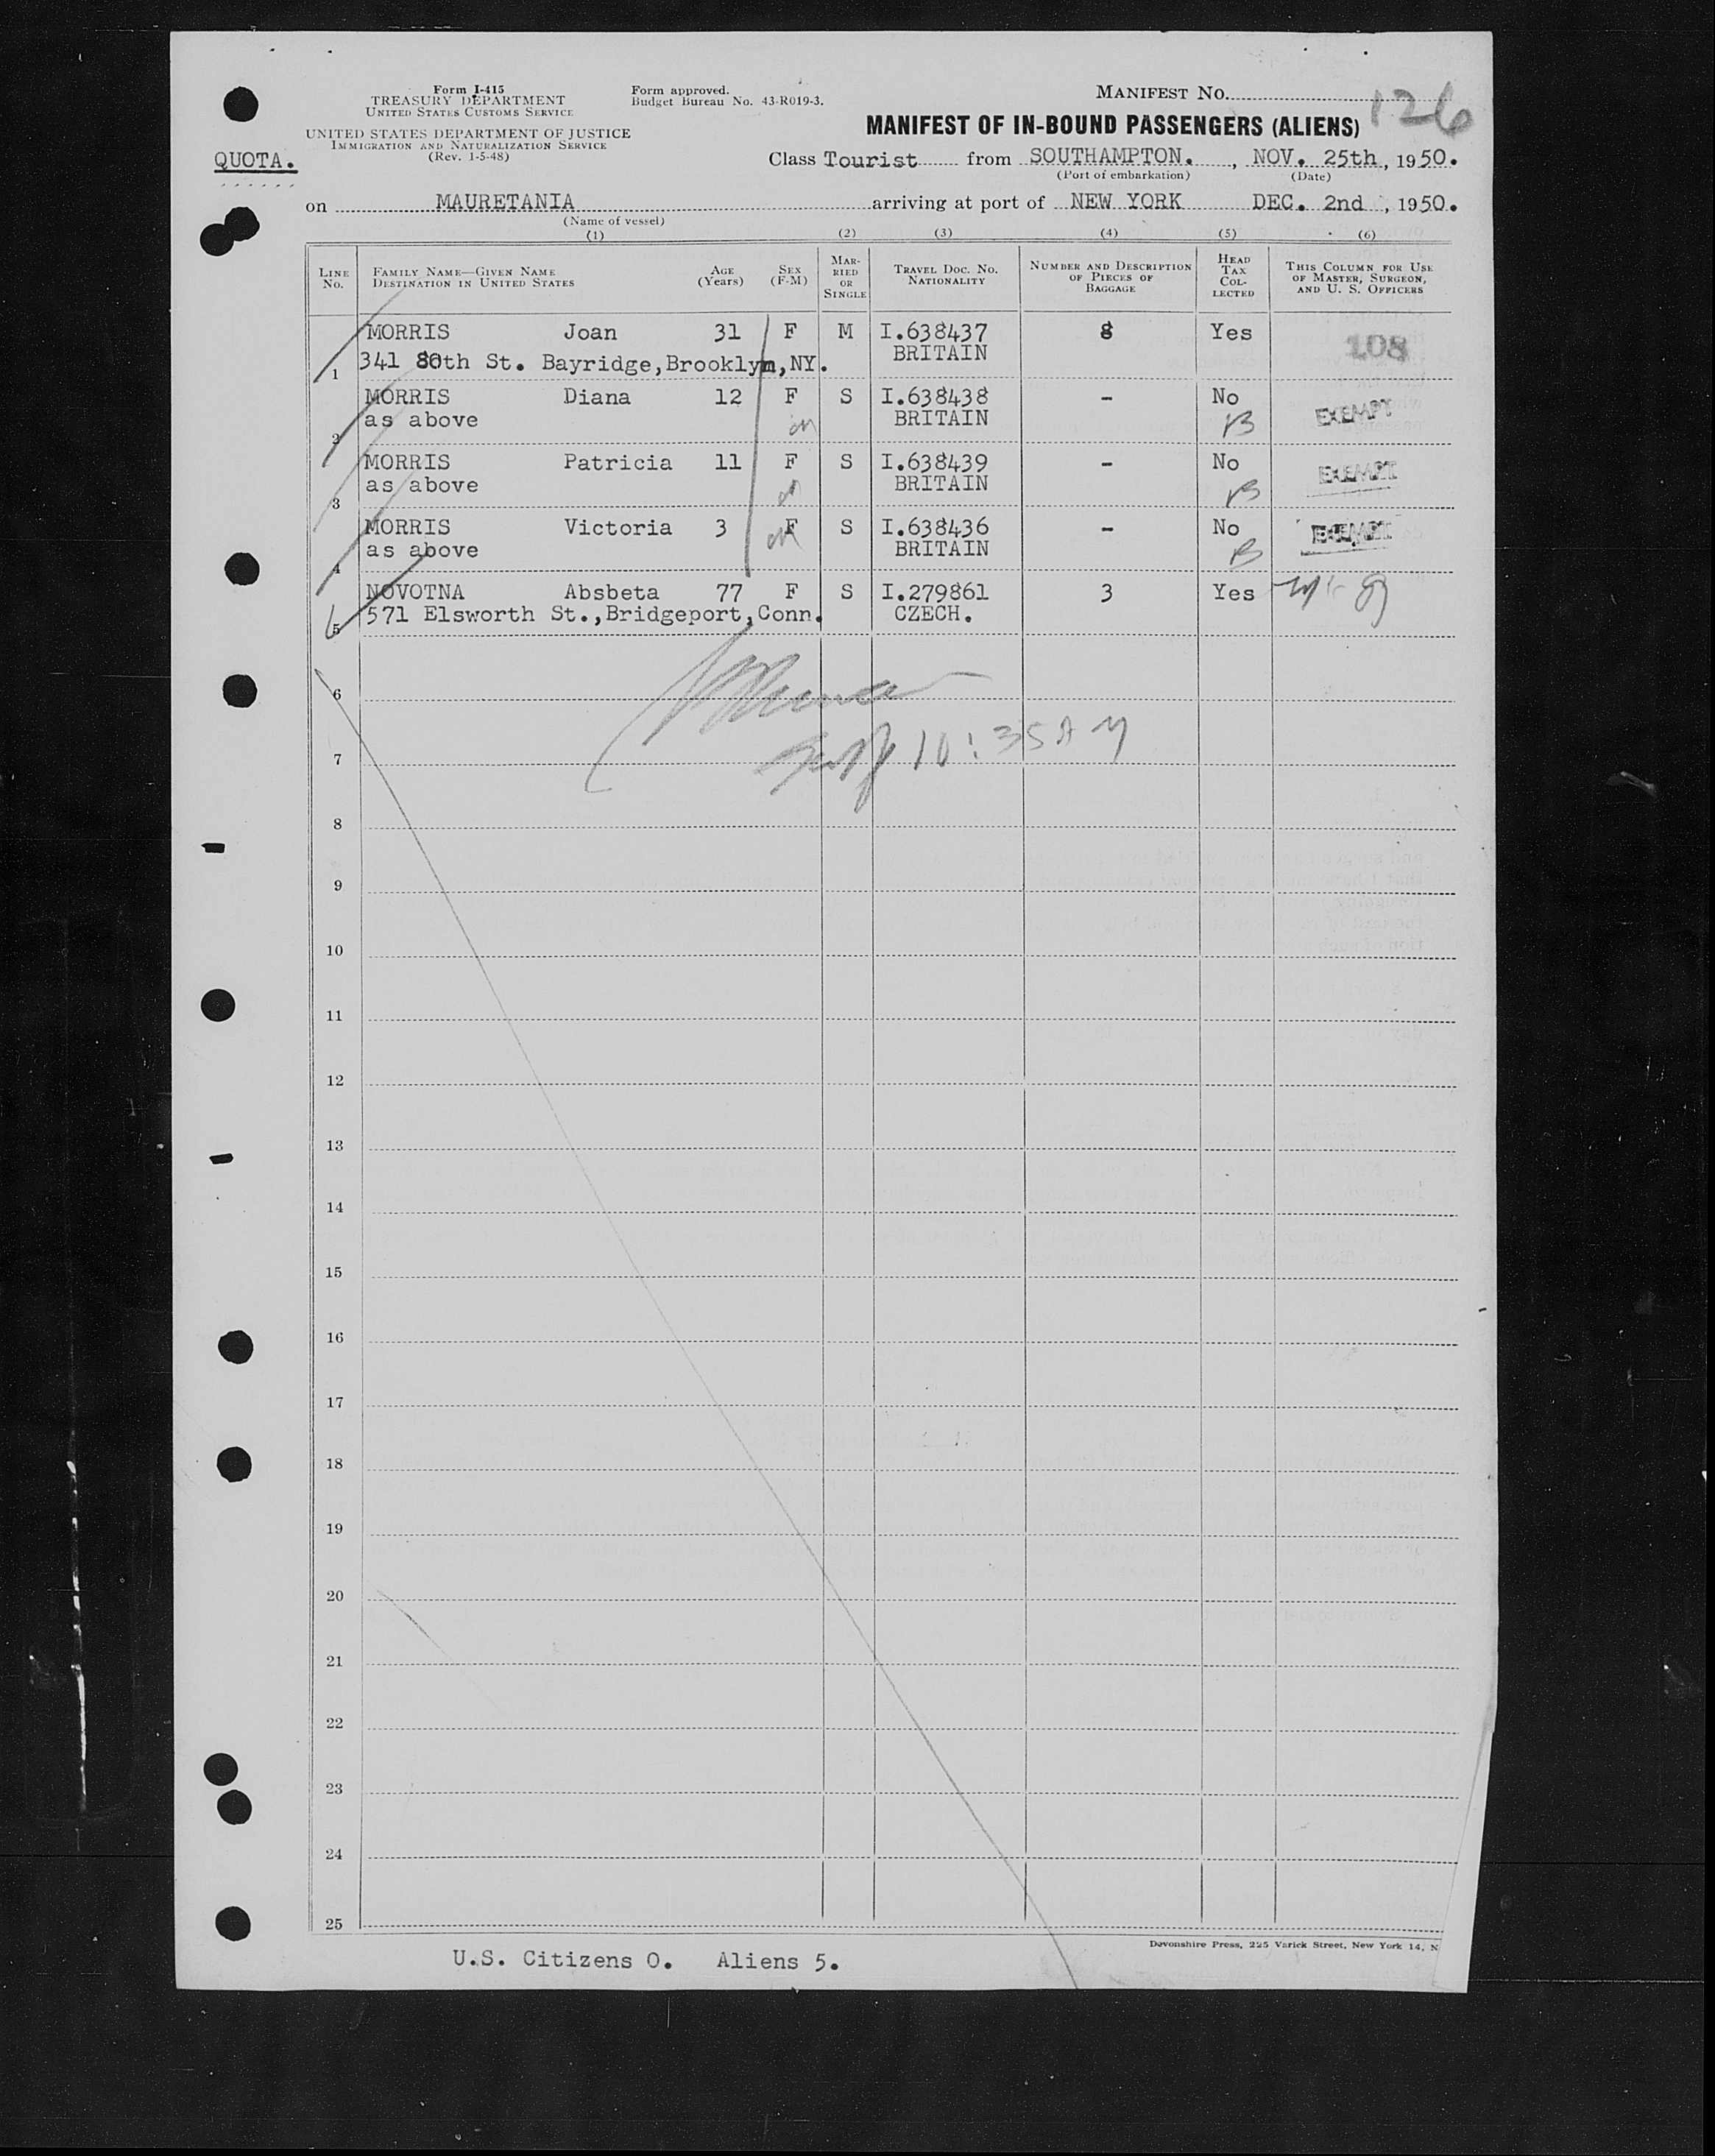 Form I-415
TREASURY DEPARTMENT
UNITED STATES CUSTOMS SERVICE
UNITED STATES DEPARTMENT OF JUSTICE
IMMIGRATION AND NATURALIZATION SERVICE
(Rev. 1-5-48)
Form approved.
Budget Bureau No. 43-R019-3.
MANIFEST No. 126
MANIFEST OF IN-BOUND PASSENGERS (ALIENS)
QUOTA.
Class Tourist from SOUTHAMPTON. , NOV. 25th, 1950.
(Port of embarkation) (Date)
on MAURETANIA arriving at port of NEW YORK DEC. 2nd , 1950.
(Name of vessel)
(1) (2) (3) (4) (5) (6)
LINE No. FAMILY NAME—GIVEN NAME DESTINATION IN UNITED STATES AGE (Years) SEX (F-M) MARRIED OR SINGLE TRAVEL DOC. No. NATIONALITY NUMBER AND DESCRIPTION OF PIECES OF BAGGAGE HEAD TAX COLLECTED THIS COLUMN FOR USE OF MASTER, SURGEON, AND U. S. OFFICERS
MORRIS Joan 31 F M I.638437 8 Yes 108
1 341 80th St. Bayridge,Brooklyn,NY. BRITAIN
MORRIS Diana 12 F S I.638438 - No EXEMPT
2 as above BRITAIN
MORRIS Patricia 11 F S I.638439 - No EXEMPT
3 as above BRITAIN
MORRIS Victoria 3 F S I.638436 - No EXEMPT
4 as above BRITAIN
NOVOTNA Absbeta 77 F S I.279861 3 Yes
5 571 Elsworth St.,Bridgeport,Conn. CZECH.
6
10:35 AM
7
8
9
10
11
12
13
14
15
16
17
18
19
20
21
22
23
24
25
Devonshire Press, 225 Varick Street, New York 14, N
U.S. Citizens 0. Aliens 5.